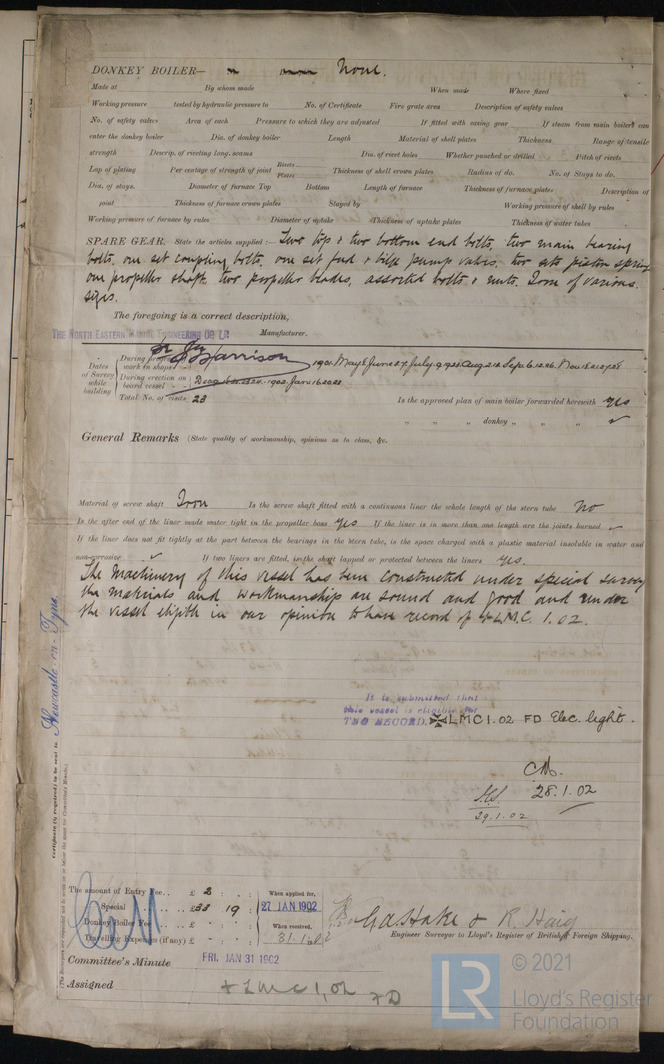 DONKEY BOILER— None.
Made at By whom made When made Where fixed
Working pressure tested by hydraulic pressure to No. of Certificate Fire grate area Description of safety valves
No. of safety valves Area of each Pressure to which they are adjusted If fitted with easing gear If steam from main boilers can
enter the donkey boiler Dia. of donkey boiler Length Material of shell plates Thickness Range of tensile
strength Descrip. of riveting long. seams Dia. of rivet holes Whether punched or drilled Pitch of rivets
Lap of plating Per centage of strength of joint Rivets Plates Thickness of shell crown plates Radius of do. No. of Stays to do.
Dia. of stays. Diameter of furnace Top Bottom Length of furnace Thickness of furnace plates Description of
joint Thickness of furnace crown plates Stayed by Working pressure of shell by rules
Working pressure of furnace by rules Diameter of uptake Thickness of uptake plates Thickness of water tubes
SPARE GEAR. State the articles supplied:— Two top & two bottom end bolts, two main bearing
bolts, one set coupling bolts, one set feed & bilge pump valves, two sets piston springs
one propeller shaft, two propeller blades, assorted bolts & nuts, Iron of various
sizes.
The foregoing is a correct description,
THE NORTH EASTERN MARINE ENGINEERING CO LD Manufacturer.
Harrison
Dates of Survey while building
During progress of work in shops - - 1901 May 8 June 27 July 9.19.25 Aug 2.12 Sep 6.12.26
During erection on board vessel - - 1902 Jan 16.20.23
Total No. of visits 23 Is the approved plan of main boiler forwarded herewith yes
" " " donkey " " "
General Remarks (State quality of workmanship, opinions as to class, &c.
Material of screw shaft Iron Is the screw shaft fitted with a continuous liner the whole length of the stern tube no
Is the after end of the liner made water tight in the propeller boss yes If the liner is in more than one length are the joints burned
If the liner does not fit tightly at the part between the bearings in the stern tube, is the space charged with a plastic material insoluble in water and
non-corrosive If two liners are fitted, is the shaft lapped or protected between the liners yes.
The Machinery of this vessel has been constructed under special survey
the materials and workmanship are sound and good and render
the vessel eligible in our opinion to have record of + L.M.C. 1.02.
It is submitted that
this vessel is eligible for
THE RECORD. ✠LMC 1.02 FD Elec. light.
28.1.02
29.1.02
Certificate (if required) to be sent to Newcastle-on-Tyne.
The amount of Entry Fee.. £ 2 : : When applied for,
Special .. £33 19 : 27 JAN 1902
Donkey Boiler Fee £ : : When received,
Travelling Expenses (if any) £ : : 31.1.02
G A Hake & R. Haig
Engineer Surveyor to Lloyd's Register of British & Foreign Shipping.
Committee's Minute FRI. JAN 31 1902
Assigned + L M C 1, 02 FD
LR © 2021
Lloyd's Register
Foundation